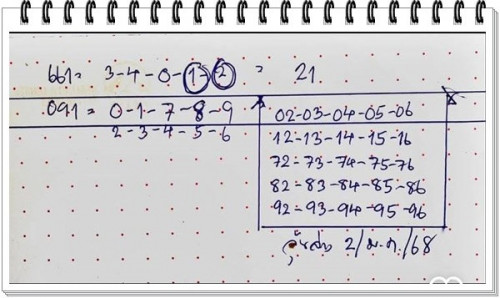 661= 3-4-0-1-2 = 21
091 = 0-1-7-8-9
2-3-4-5-6
02-03-04-05-06
12-13-14-15-16
72-73-74-75-76
82-83-84-85-86
92-93-94-95-96
2/ม.ค./68